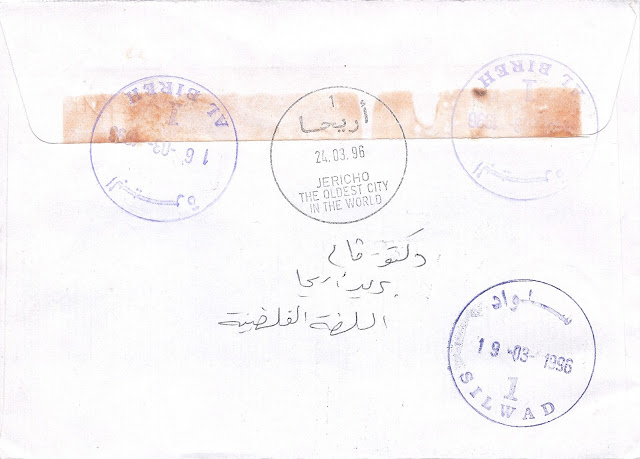 AL BIREH
1
16-03-1996
البيرة
1
أريحا
24.03.96
JERICHO
THE OLDEST CITY
IN THE WORLD
AL BIREH
1
البيرة
دكتور
بريد أريحا
سلواد
19-03-1996
1
SILWAD